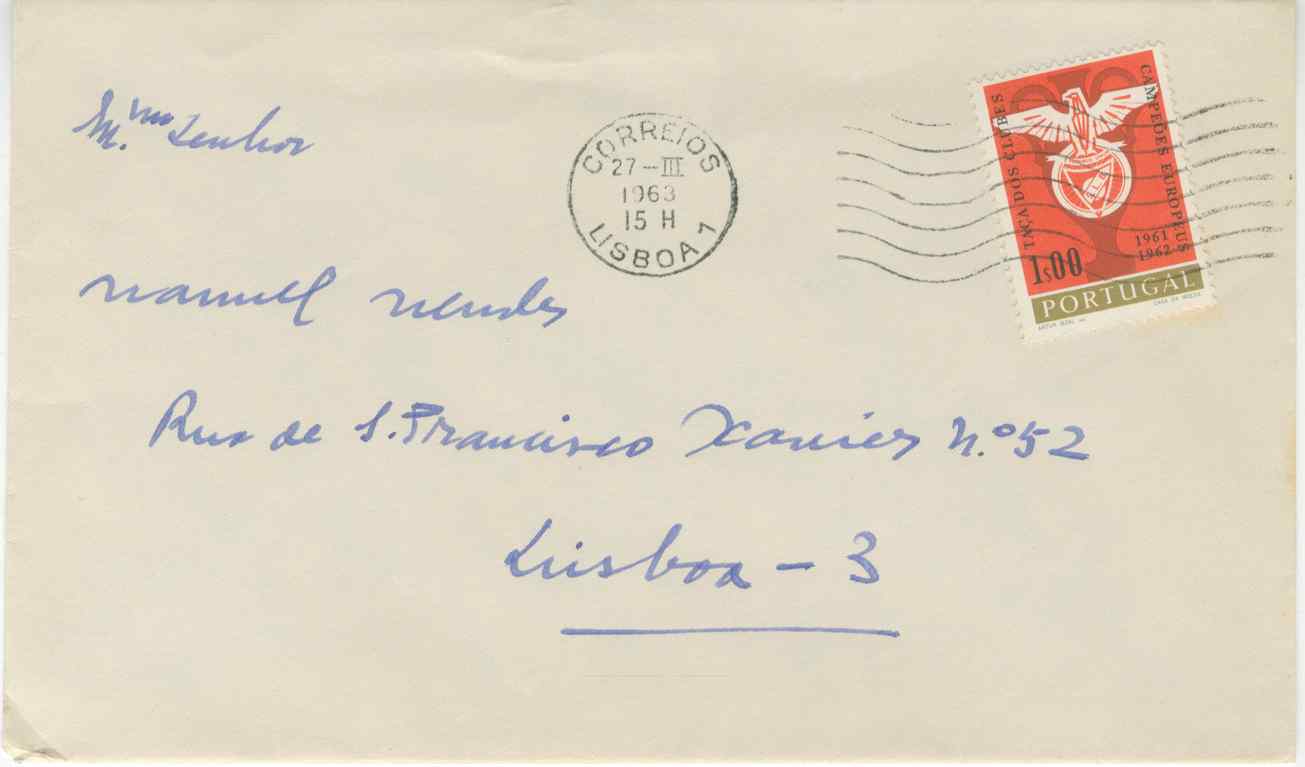 M.mo Senhor
Manuel Mendes
Rua de S. Francisco Xavier N.º 52
Lisboa - 3
CORREIOS
27-III
1963
15 H
LISBOA 1
TAÇA DOS CLUBES
CAMPEÕES EUROPEUS
1961
1962
1$00
PORTUGAL
CASA DA MOEDA